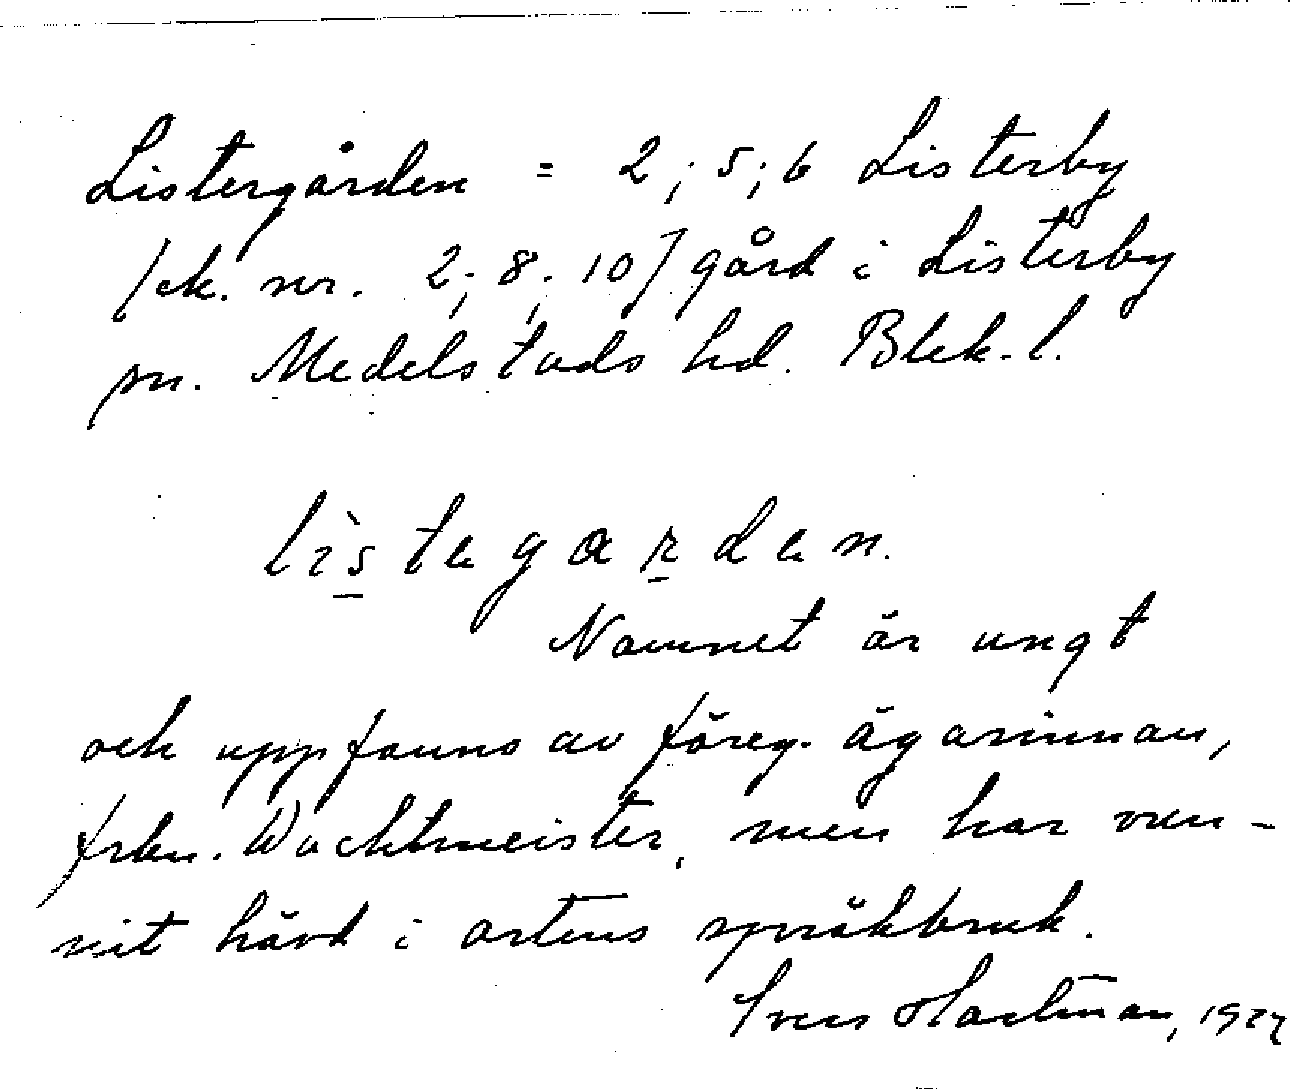 Listergården = 2; 5; 6 Listerby
/ek. nr. 2; 8; 10/ gård i Listerby
sn. Medelstads hd. Blek. l.
listegarden.
Namnet är ungt
och uppfanns av föreg. ägarinnan,
frkn. Wachtmeister, men har vun-
nit hävd i ortens språkbruk.
Sven Hartman, 1927